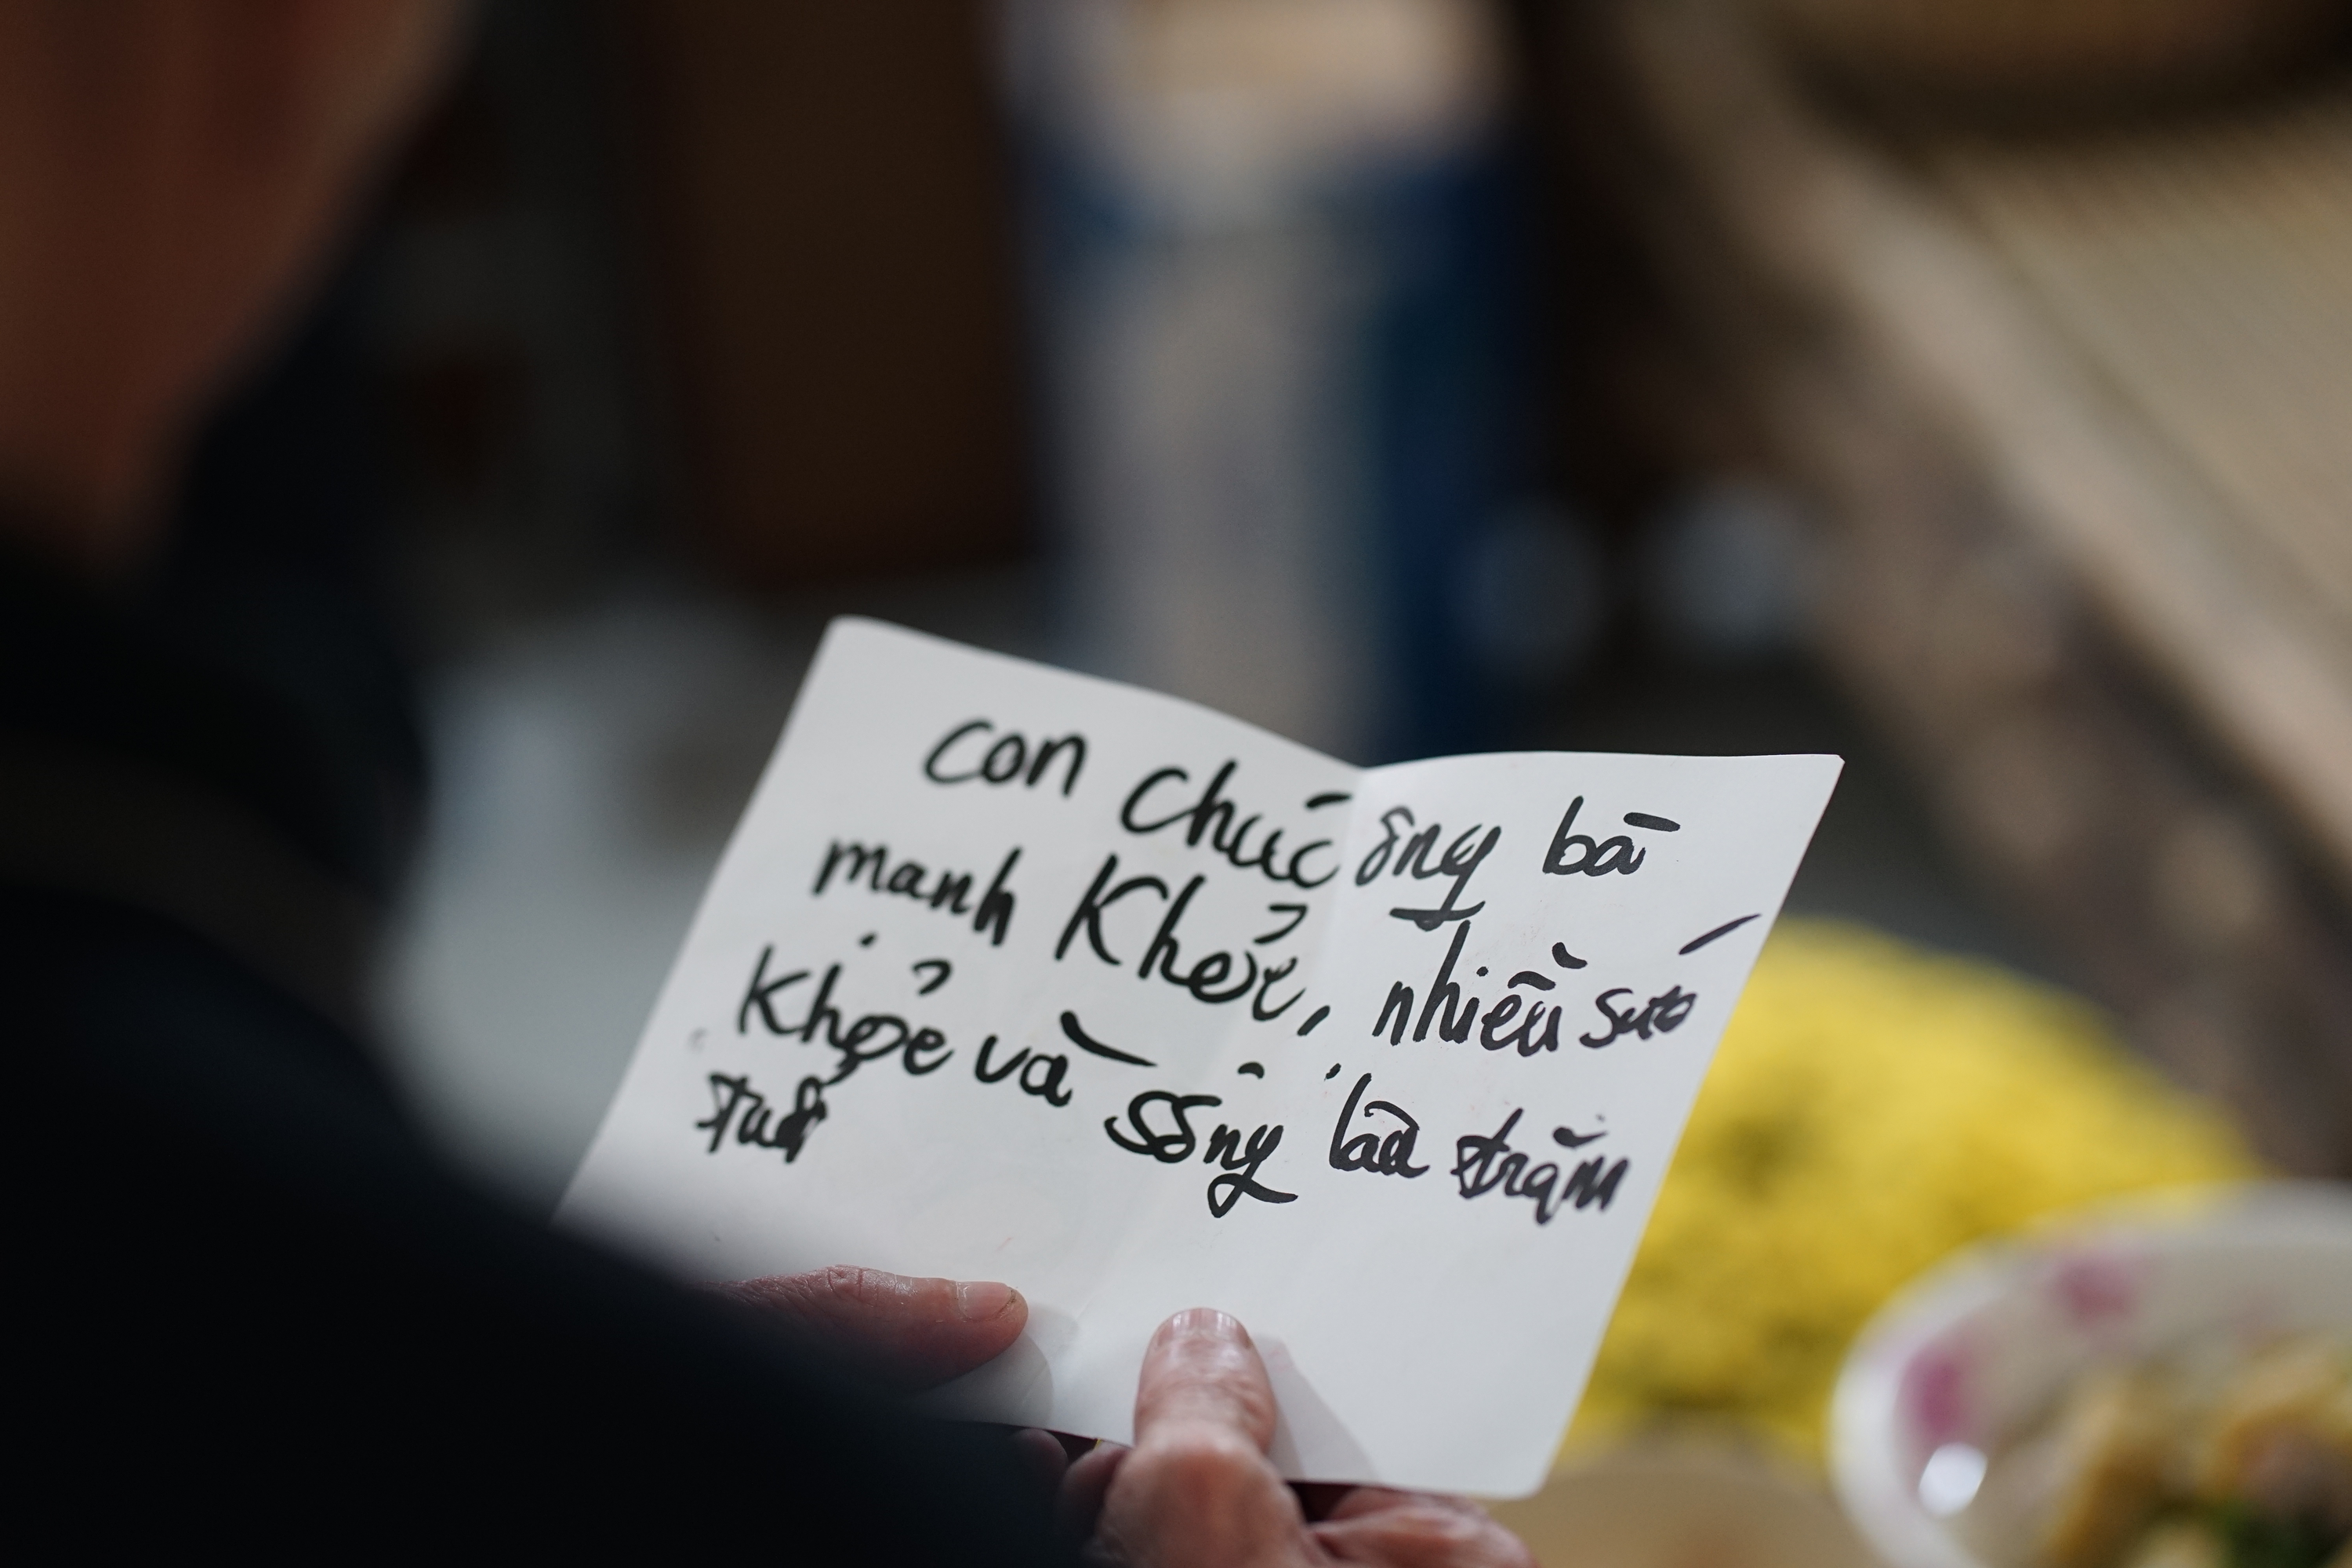 con chúc ông bà
mạnh Khỏe, nhiều sức
Khỏe và sống lâu trăm
tuổi